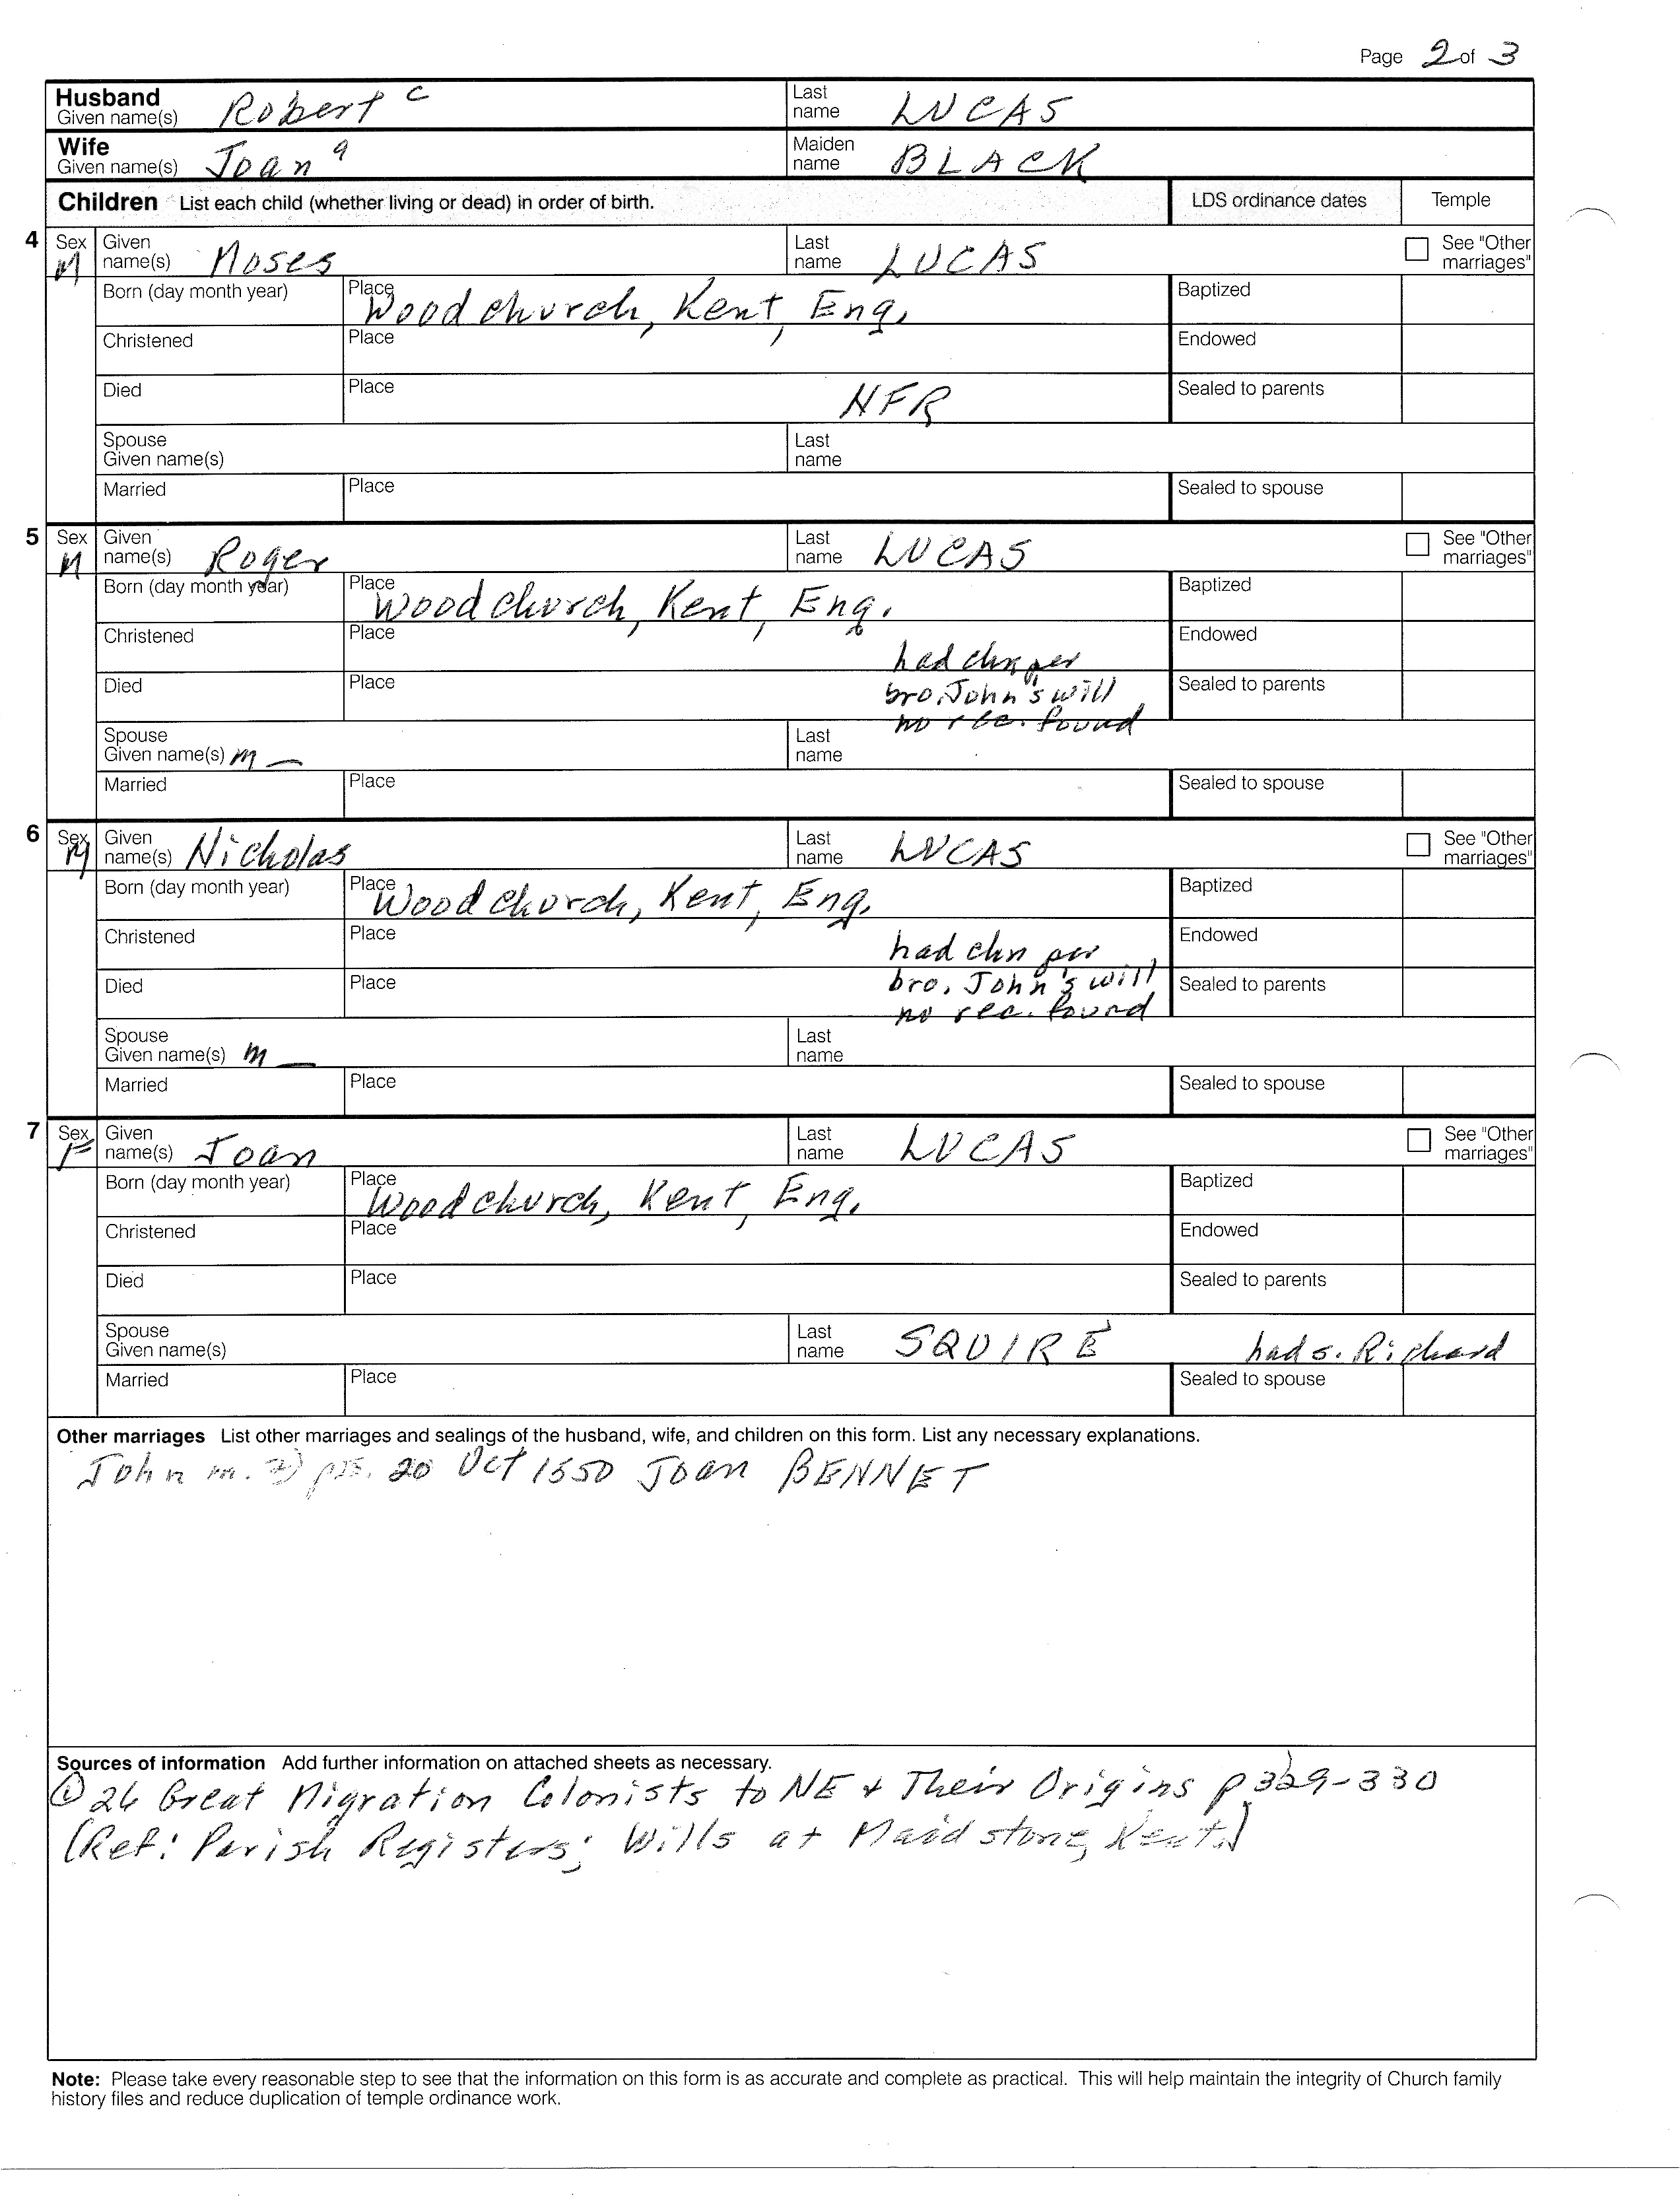 Page 2 of 3
Husband Given name(s) Robert c Last name LUCAS
Wife Given name(s) Joan a Maiden name BLACK
Children List each child (whether living or dead) in order of birth. LDS ordinance dates Temple
4 Sex M Given name(s) Moses Last name LUCAS See "Other marriages"
Born (day month year) Place Woodchurch, Kent, Eng. Baptized
Christened Place Endowed
Died Place NFR Sealed to parents
Spouse Given name(s) Last name
Married Place Sealed to spouse
5 Sex M Given name(s) Roger Last name LUCAS See "Other marriages"
Born (day month year) Place Woodchurch, Kent, Eng. Baptized
Christened Place had chn per Endowed
Died Place bro. John's will Sealed to parents
no rec. found
Spouse Given name(s) m — Last name
Married Place Sealed to spouse
6 Sex M Given name(s) Nicholas Last name LUCAS See "Other marriages"
Born (day month year) Place Woodchurch, Kent, Eng. Baptized
Christened Place had chn per Endowed
Died Place bro. John's will Sealed to parents
no rec. found
Spouse Given name(s) m — Last name
Married Place Sealed to spouse
7 Sex F Given name(s) Joan Last name LUCAS See "Other marriages"
Born (day month year) Place Woodchurch, Kent, Eng. Baptized
Christened Place Endowed
Died Place Sealed to parents
Spouse Given name(s) Last name SQUIRE had s. Richard
Married Place Sealed to spouse
Other marriages List other marriages and sealings of the husband, wife, and children on this form. List any necessary explanations.
John m. 2) 20 Oct 1550 Joan BENNET
Sources of information Add further information on attached sheets as necessary.
① 26 Great Migration Colonists to NE + Their Origins p 329-330
(Ref: Parish Registers; Wills at Maidstone, Kent.)
Note: Please take every reasonable step to see that the information on this form is as accurate and complete as practical. This will help maintain the integrity of Church family
history files and reduce duplication of temple ordinance work.